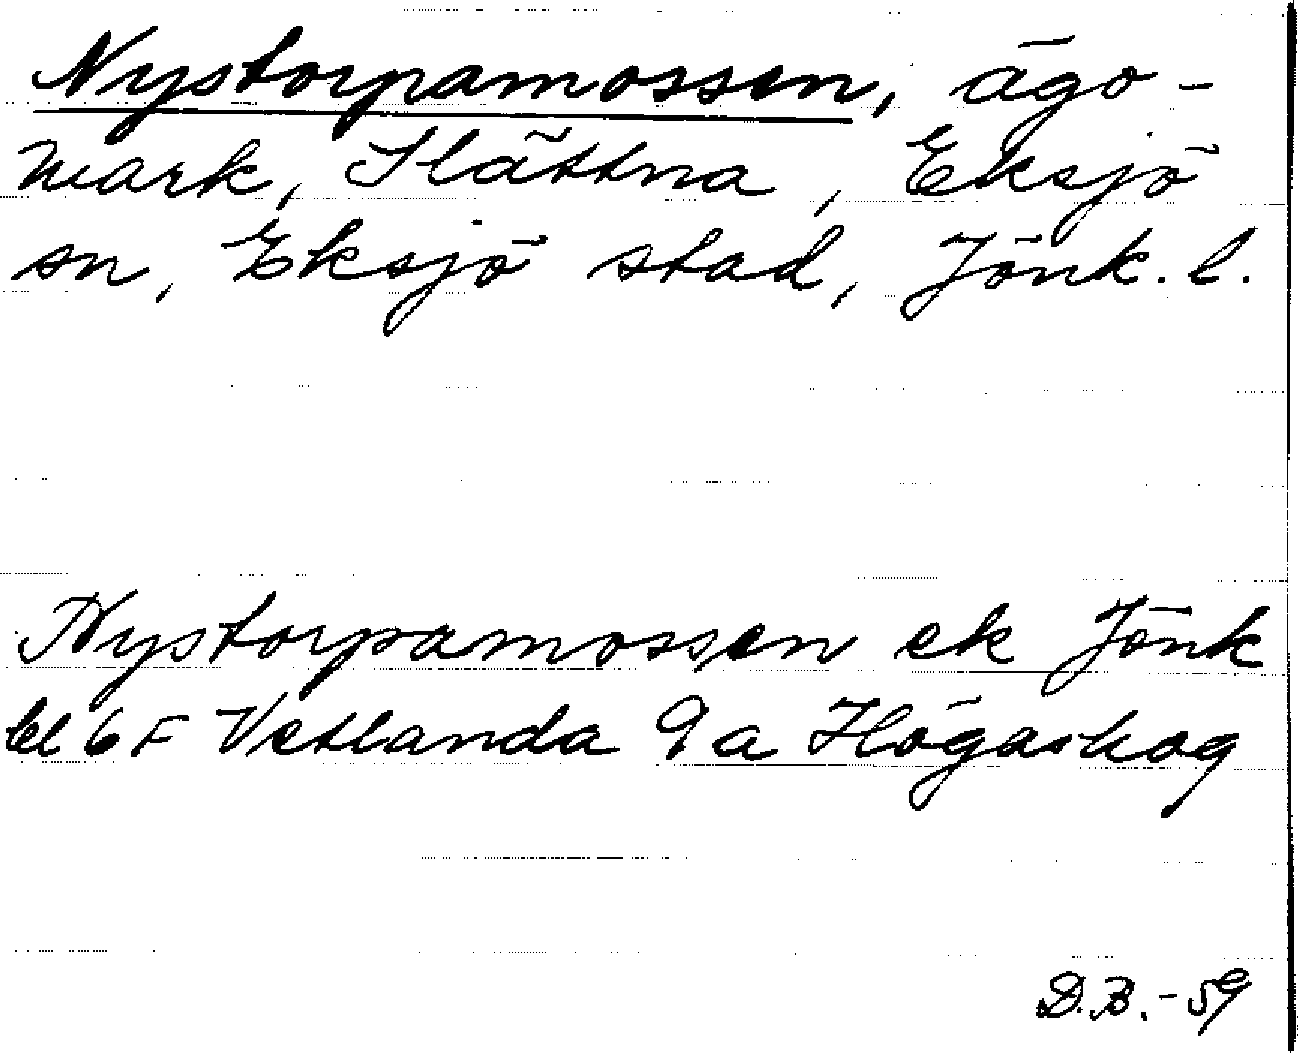 Nystorpamossen, ägo-
mark, Slättna, Eksjö
sn, Eksjö stad, Jönk. l.
Nystorpamossen ek Jönk
bl 6F Vetlanda 9a Högaskog
D.B.-59